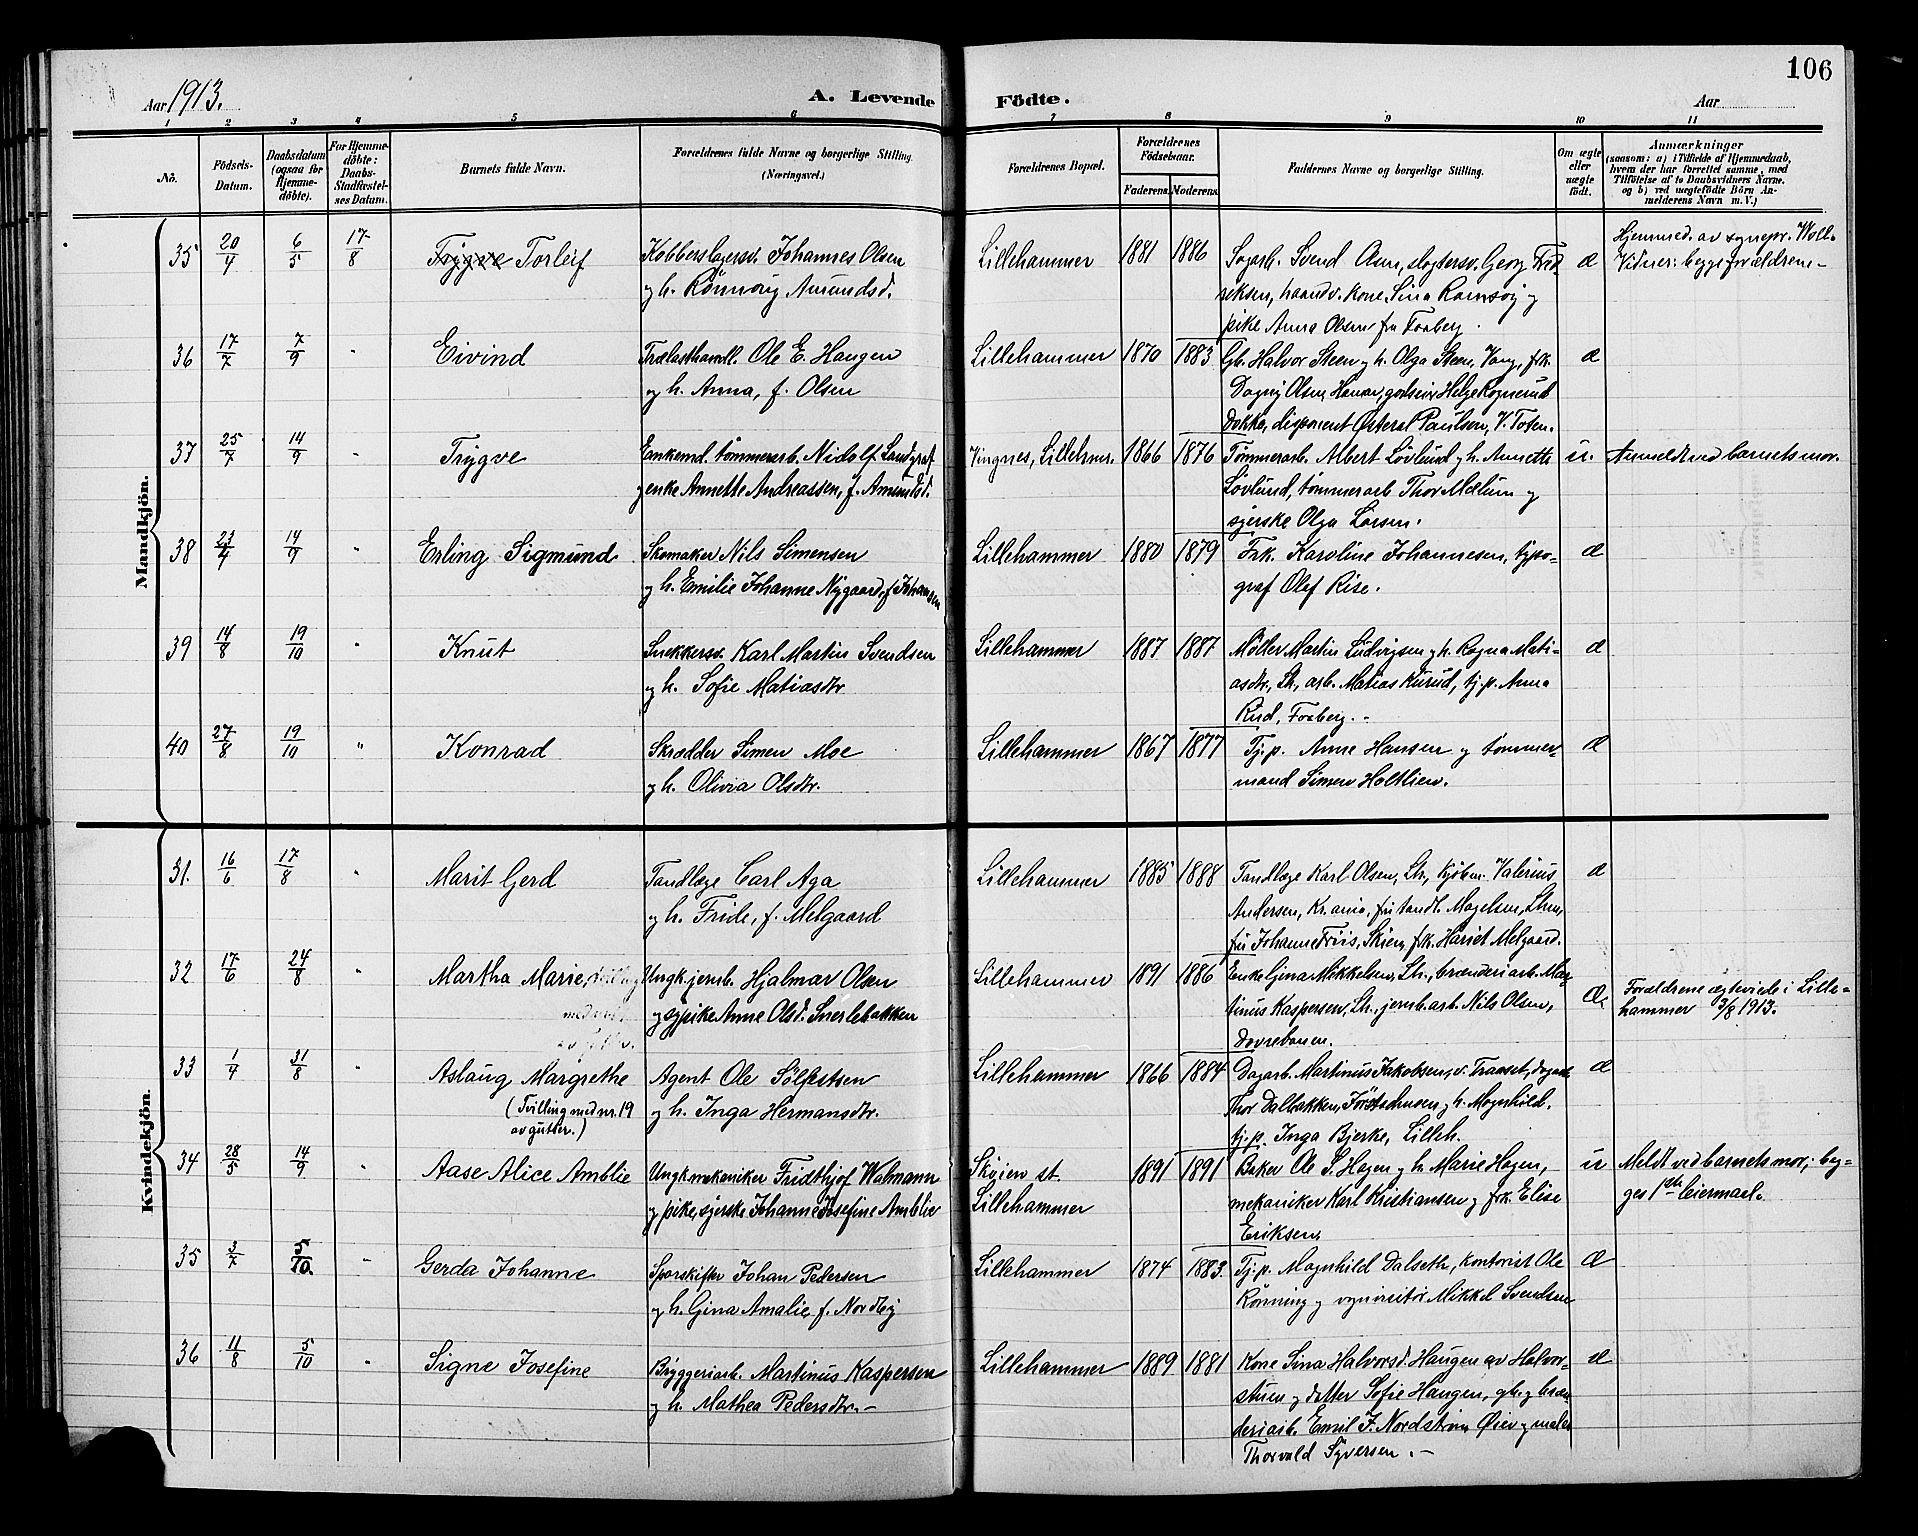 106
Aar 1913.
A. Levende Födte.
Aar
1 2 3 4 5 6 7 8 9 10 11
No.
Födsels-
Datum.
Daabsdatum
(ogsaa for
Hjemme-
døbte).
For Hjemme-
døbte:
Daabs-
Stadfæstel-
ses Datum.
Barnets fulde Navn.
Forældrenes fulde Navne og borgerlige Stilling.
(Næringsvei.)
Forældrenes Bopæl.
Forældrenes
Födselsaar.
Faderens. Moderens.
Faddernes Navne og borgerlige Stilling.
Om ægte
eller
uægte
født.
Anmærkninger
(saasom: a) i Tilfælde af Hjemmedaab,
hvem der har forrettet samme, med
Tilføielse af to Daabsvidners Navne,
og b) ved uægtefødte Börn An-
melderens Navn m. V.)
Mandkjön.
35 20/4 6/5 17/8 Trygve Torleif Kobberslagersv. Johannes Olsen Lillehammer 1881 1886 Sagarb. Svend Olsen, slagtersv. Georg Fred- æ Hjemmed. av sognepr. Woll.
og h. Rønnaug Amundsd. riksen, haandv. kone Sina Ramsøy og Vidner: begge forældrene –
pike Anna Olsen fra Faaberg.
36 17/7 7/9 " Eivind Trælasthandl. Ole E. Haugen Lillehammer 1870 1883 Gb. Halvor Steen og h. Olga Steen, Vang, frk. æ
og h. Anna, f. Olsen Dagny Olsen, Hamar, godseier Helge Rognerud
Dokka, disponent Østerst Paulsen, V. Toten.
37 25/7 14/9 " Trygve Enkemd. tømmerarb. Nidolf Landgraf Vingnes, Lillehmr. 1866 1876 Tømmerarb. Albert Løvlund og h. Annette u. Anmeldt ved barnets mor.
og enke Annette Andreassen, f. Amundsd. Løvlund, tømmerarb Thor Mælum og
syerske Olga Larsen.
38 23/4 14/9 " Erling Sigmund Skomaker Nils Simensen Lillehammer 1880 1879 Frk. Karoline Johannesen, typo- æ
og h. Emilie Johanne Nygaard, f. Johansen graf Olef Rise.
39 14/8 19/10 " Knut Snekkersv. Karl Martin Svendsen Lillehammer 1887 1887 Møller Martin Ludvigsen og h. Ragna Mati- æ
og h. Sofie Matiasdtr asdtr., Lh., arb. Matias Kurud, tj.p. Anna
Rud, Faaberg. –
40 27/8 19/10 " Konrad Skrædder Simen Moe Lillehammer 1867 1877 Tj.p. Anne Hansen og tømmer- æ
og h. Olivia Olsdtr. mand Simen Holtlien.
Kvindekjön.
31. 16/6 17/8 " Marit Gerd Tandlæge Carl Aga Lillehammer 1885 1888 Tandlæge Karl Olsen, Lh., kjøbm. Valerius æ
og h. Fride, f. Melgaard Andersen, Kr.ania, fru tandl. Magelsen, Lhm,
fru Johanne Friis, Skien, frk. Hariet Melgaard.
32 17/6 24/8 " Martha Marie, Ungk. jernb. Hjalmar Olsen Lillehammer 1891 1886 Enke Gina Mikkelsen, Lh., brænderiarb. Mar-
og sypike Anne Olsd. Snerlebakken tinus Kaspersen, Lh., jernb.arb. Nils Olsen, æ. Forældrene egteviede i Lille-
Dovrebanen. hammer 3/8 1913.
33 1/4 31/8 Aslaug Margrethe Agent Ole Sølfestsen Lillehammer 1866 1884 Dagarb. Martinus Jakobsen, v. Transet, dagarb. æ
(Tvilling med nr. 19 og h. Inga Hermansdtr. Thor Dalbakken, Førstadmoen og h. Magnhild.
av gutter.) tj.p. Inga Bjerke, Lilleh.
34 28/5 14/9 " Aase Alice Amblie Ungk. mekaniker Fridthjof Walmann Skøien st. 1891 1891 Baker Ole S. Hagen og h. Marie Hagen, u Meldt ved barnets mor; beg-
og pike, syerske Johanne Josefine Amblie Lillehammer mekaniker Karl Kristiansen og frk. Elise ges 1ste leiermaal.
Eriksen.
35 3/7 5/10. " Gerda Johanne Sporskifter Johan Pedersen Lillehammer 1874 1883. Tj.p. Magnhild Dalseth, kontorist Ole æ
og h. Gina Amalie, f. Nordby Rønning og vognvisitør Mikkel Svendsen
36 11/8 5/10 " Signe Josefine Bryggeriarb. Martinus Kaspersen Lillehammer 1889 1881 Kone Sina Halvorsd. Haugen av Halvor- æ
og h. Mathea Pedersdtr. – stuen og datter Sofie Haugen, gb. og bræn-
deriarb. Emil F. Nordstrøm Øien og maler
Thorvald Syversen. –